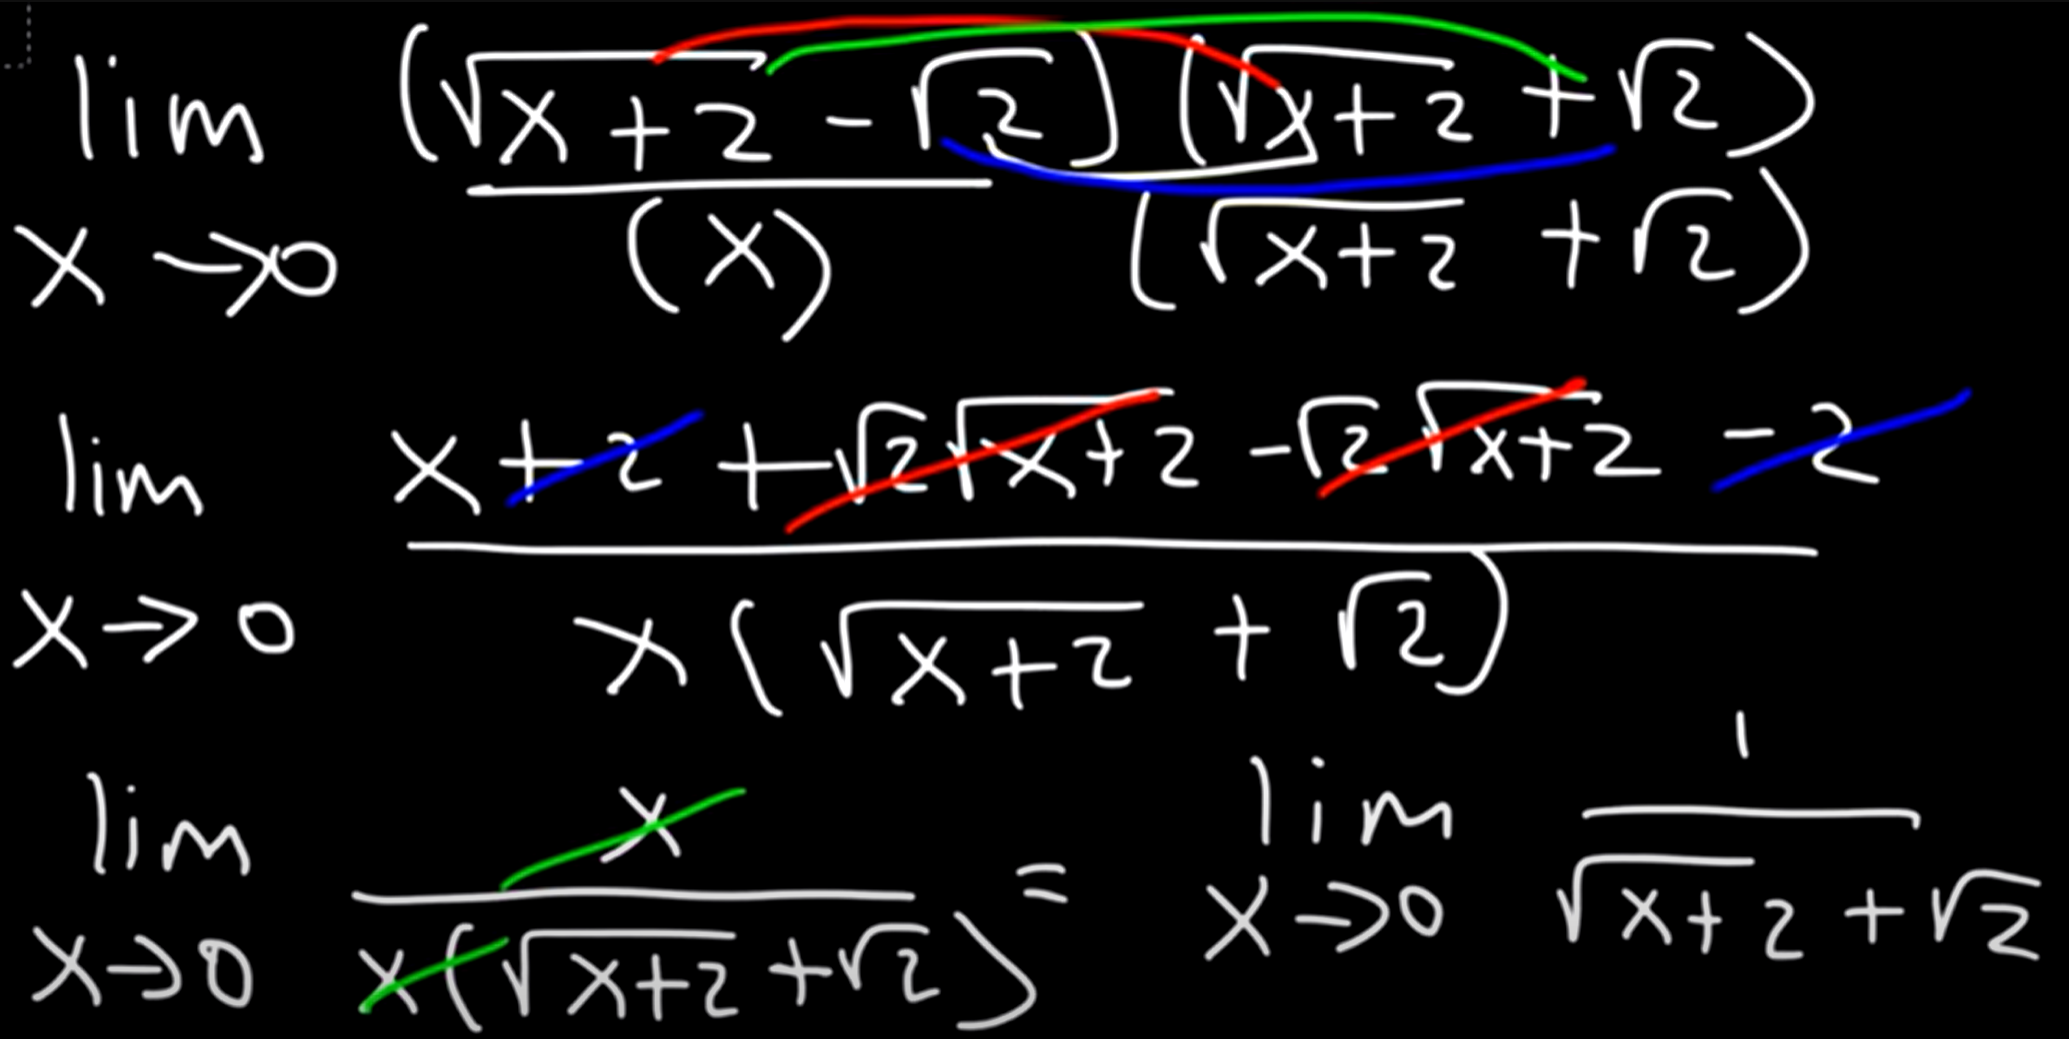 lim x→0 (√(x+2) - √2)(√(x+2) + √2) / (x)(√(x+2) + √2)
lim x→0 (x + 2 + √2√(x+2) - √2√(x+2) - 2) / x(√(x+2) + √2)
lim x→0 x / x(√(x+2) + √2) = lim x→0 1 / (√(x+2) + √2)